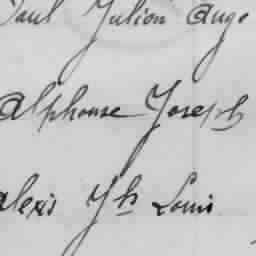 Paul Julien Ange
Alphonse Joseph
Alexis Jh Louis